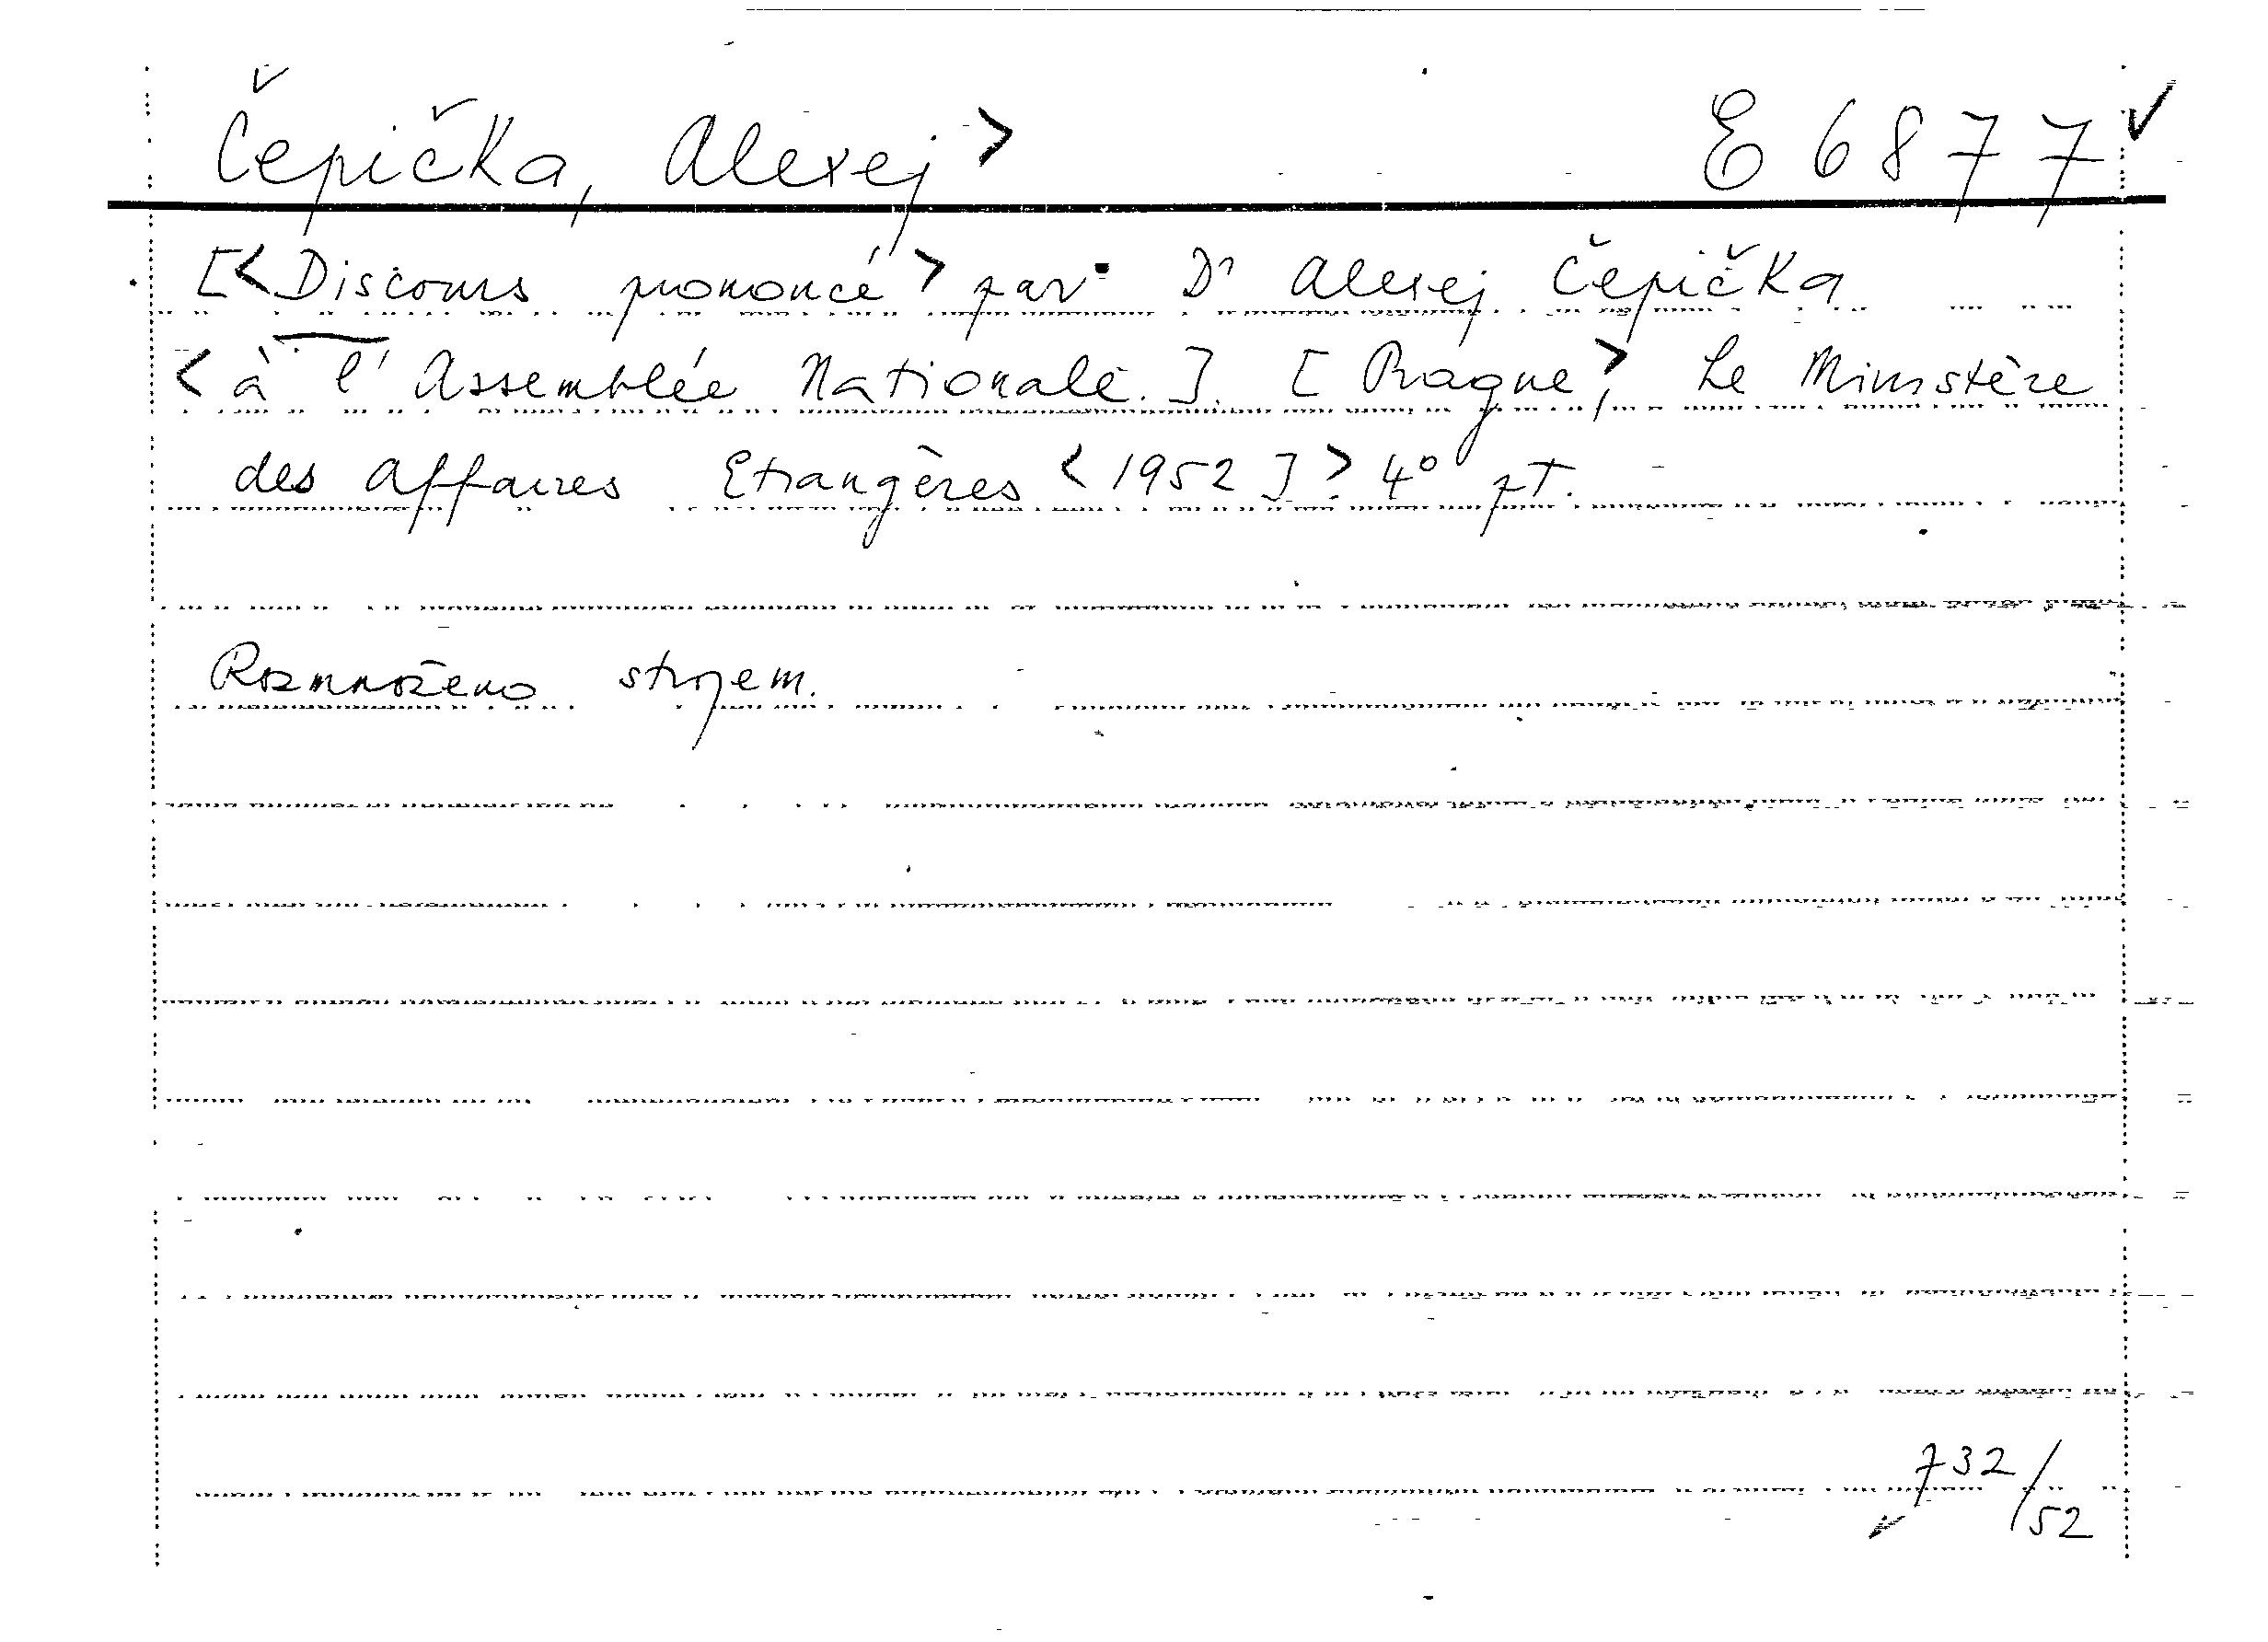 Čepička, Alexej > E 6877 ✓
[<Discours prononcé> par Dr Alexej Čepička
<à l'Assemblée Nationale.]. [Prague>, Le Ministère
des Affaires Etrangères <1952]> 4° pt.
Rozmnoženo strojem.
732/52